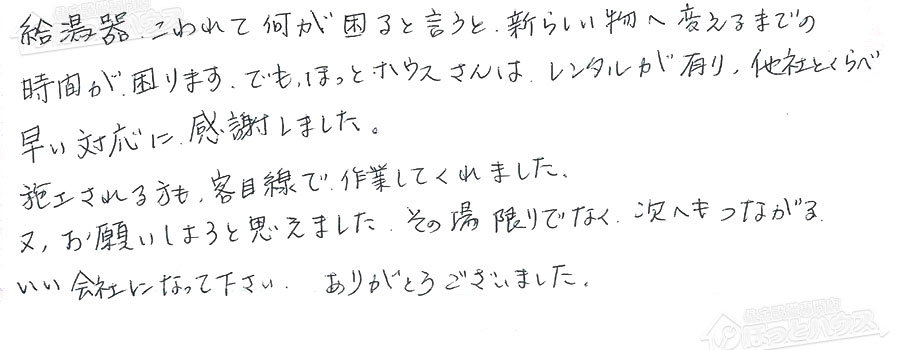 給湯器、こわれて何が困ると言うと、新らしい物へ変えるまでの
時間が、困ります、でも、ほっとハウスさんは、レンタルが有り、他社とくらべ
早い対応に、感謝しました。
施工される方も、客目線で、作業してくれました、
又、お願いしようと思えました、その場限りでなく、次へもつながる、
いい会社になって下さい、ありがとうございました。
住宅設備専門店
ほっとハウス